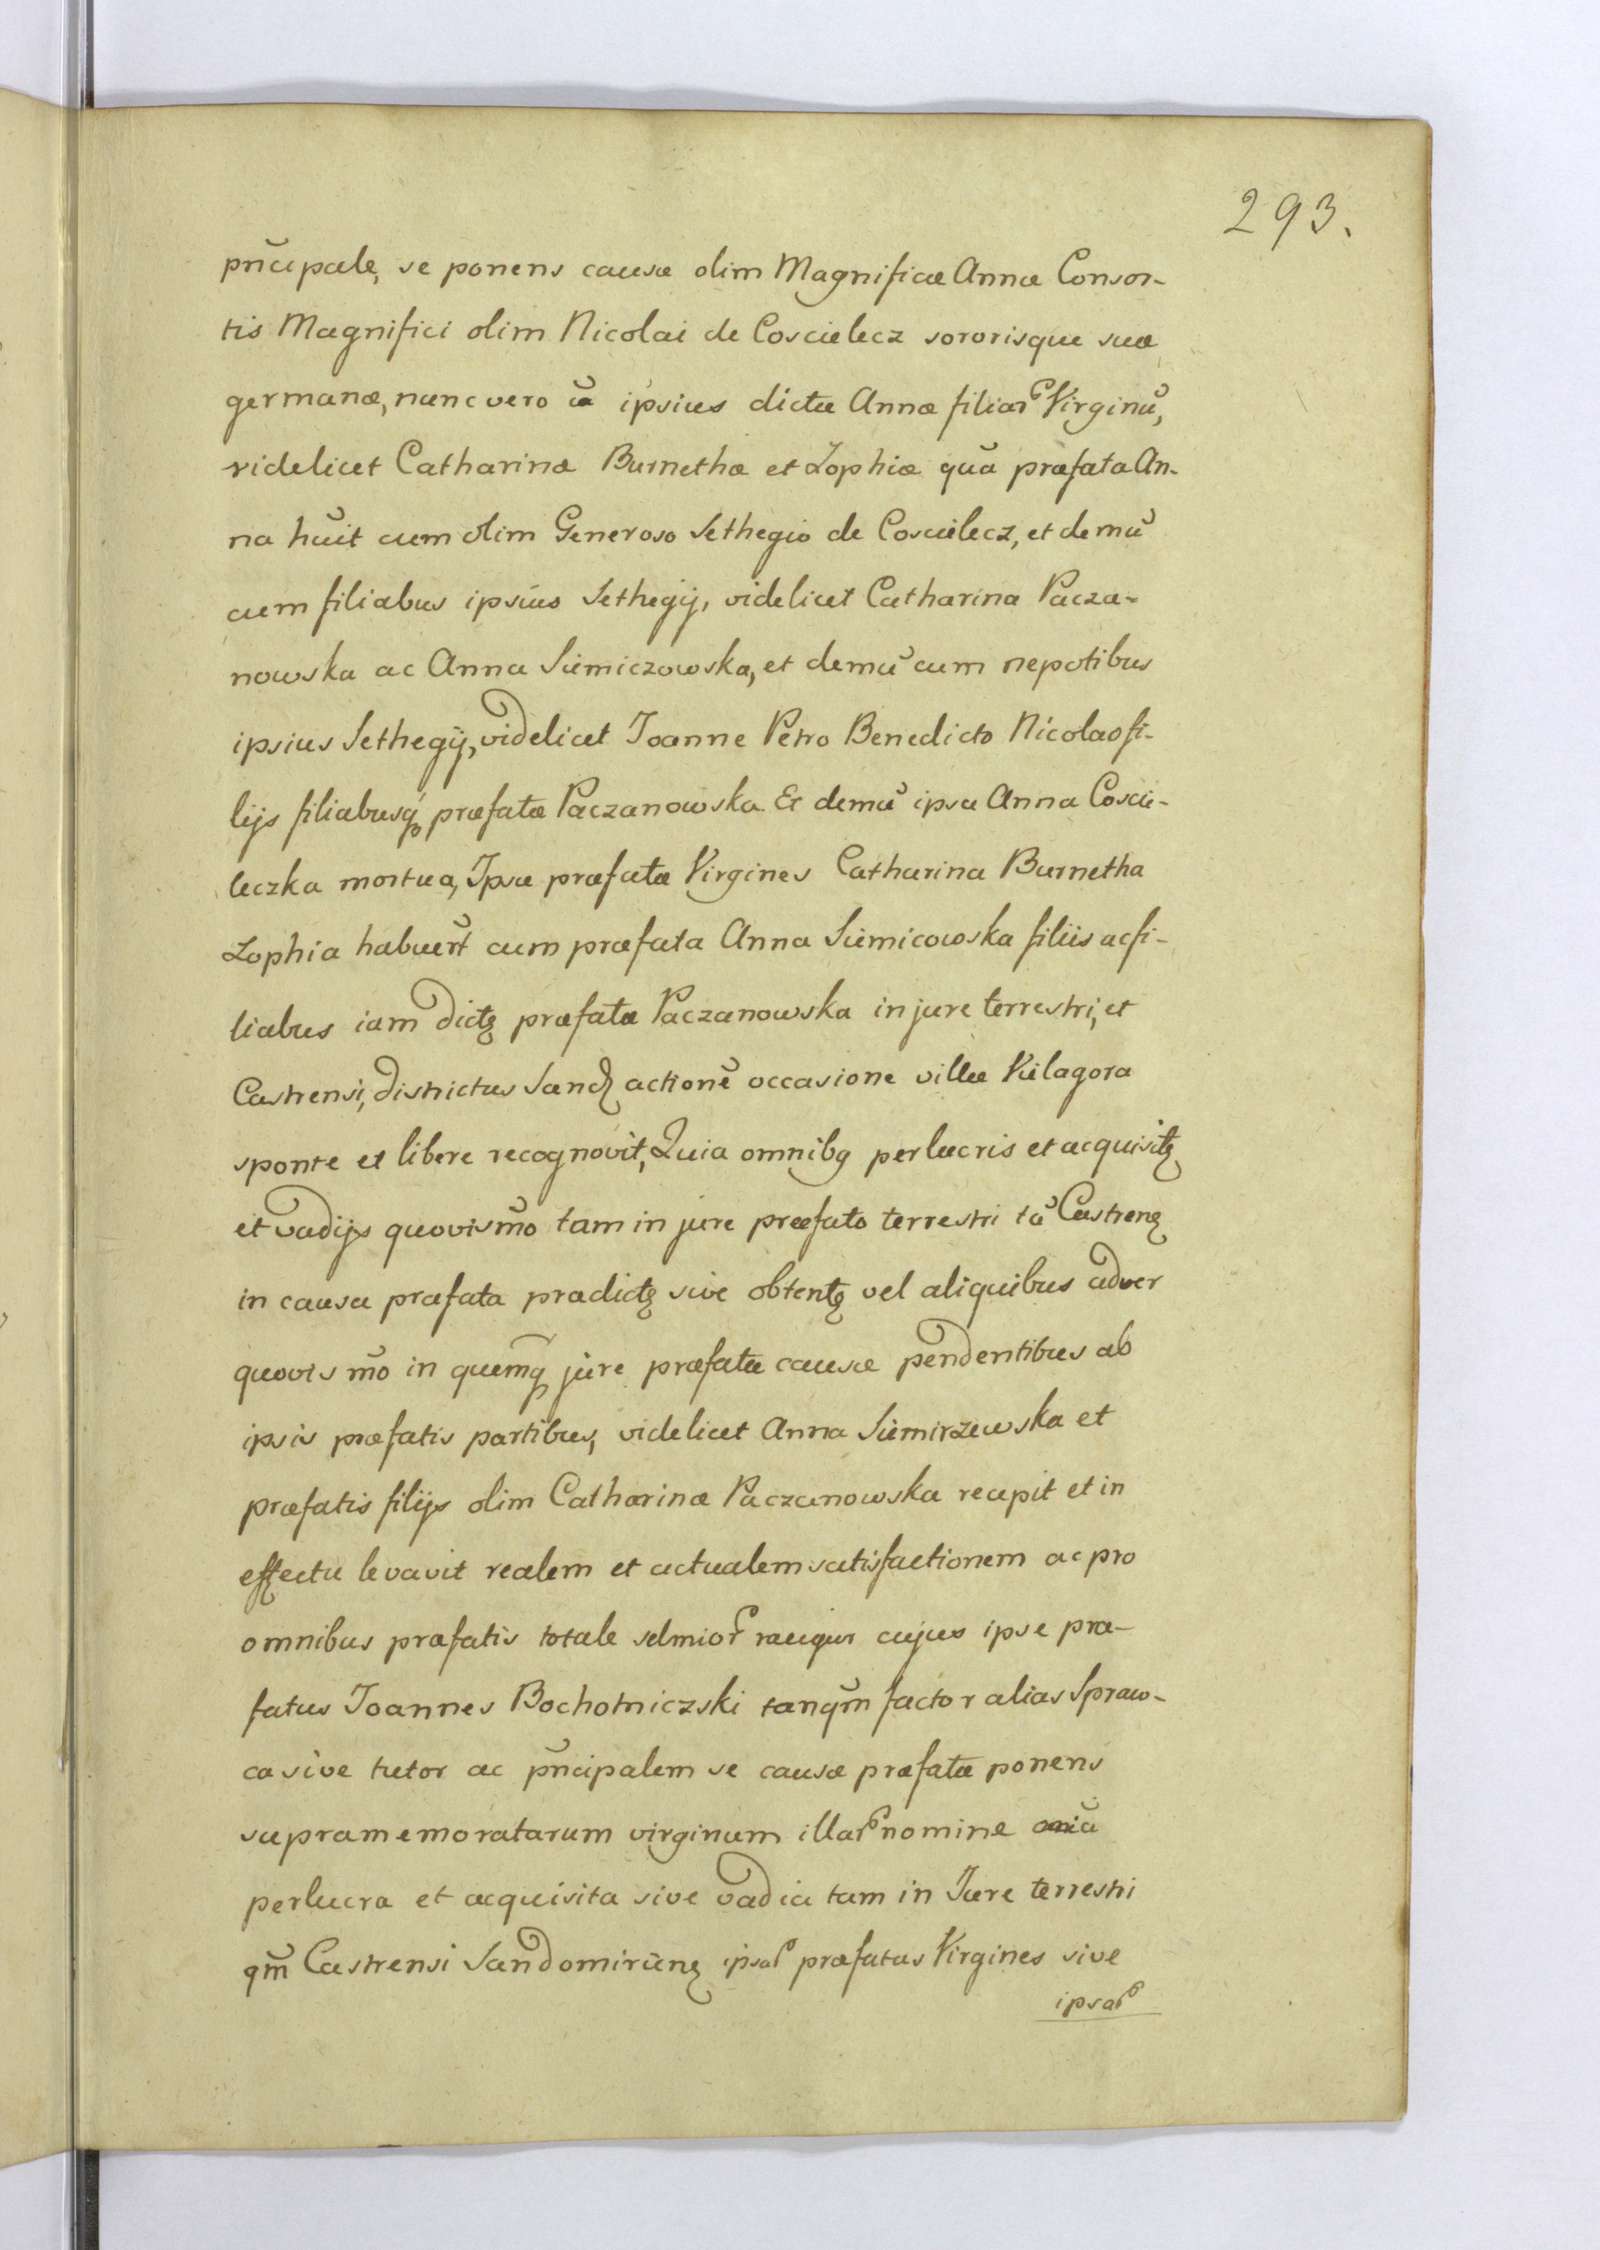 293.
pn̄cipale, se ponens causæ olim Magnificæ Annæ Consor-
tis Magnifici olim Nicolai de Coscielecz sororisque suæ
germanæ, nunc vero ipsius dictæ Annæ filiar Virginū,
videlicet Catharinæ Burnethæ et Zophiæ quā præfata An-
na hūit cum olim Generoso Sethegio de Coscielecz, et demū
cum filiabus ipsius Sethegij, videlicet Catharina Pacza-
nowska ac Anna Siemiczowska, et demū cum nepotibus
ipsius Sethegij, videlicet Joanne Petro Benedicto Nicolao fi-
lijs filiabusq præfatæ Paczanowska Et demū ipsa Anna Coscie-
leczka mortua, Ipsæ præfatæ Virgines Catharina Burnetha
Zophia habuert̄ cum præfata Anna Siemicowska filiis ac fi-
liabus iam dictę præfatæ Paczanowska in jure terrestri, et
Castrensi, districtus Sand actionē occasione villæ Vielagora
sponte et libere recognovit, Quia omnibq perlucris et acquisitę
et vadijs quovis mō tam in jure præfato terrestri tā Castrenę
in causa præfata prædictę sive obtentę vel aliquibus adver
quovis mō in quemq jure præfatæ causæ pendentibus ab
ipsis præfatis partibus, videlicet Anna Siemirzewska et
præfatis filijs olim Catharinæ Paczanowska recepit et in
effectu levavit realem et actualem satisfactionem ac pro
omnibus præfatis totale cujus ipse præ-
fatus Joannes Bochotniczski tanqm̄ factor alias Spraw-
ca sive tutor ac pn̄cipalem se causæ præfatæ ponens
supramemoratarum virginum illar nomine
perlucra et acquisita sive vadia tam in Jure terrestri
qm̄ Castrensi Sandomirienę ipsar præfatas Virgines sive
ipsar